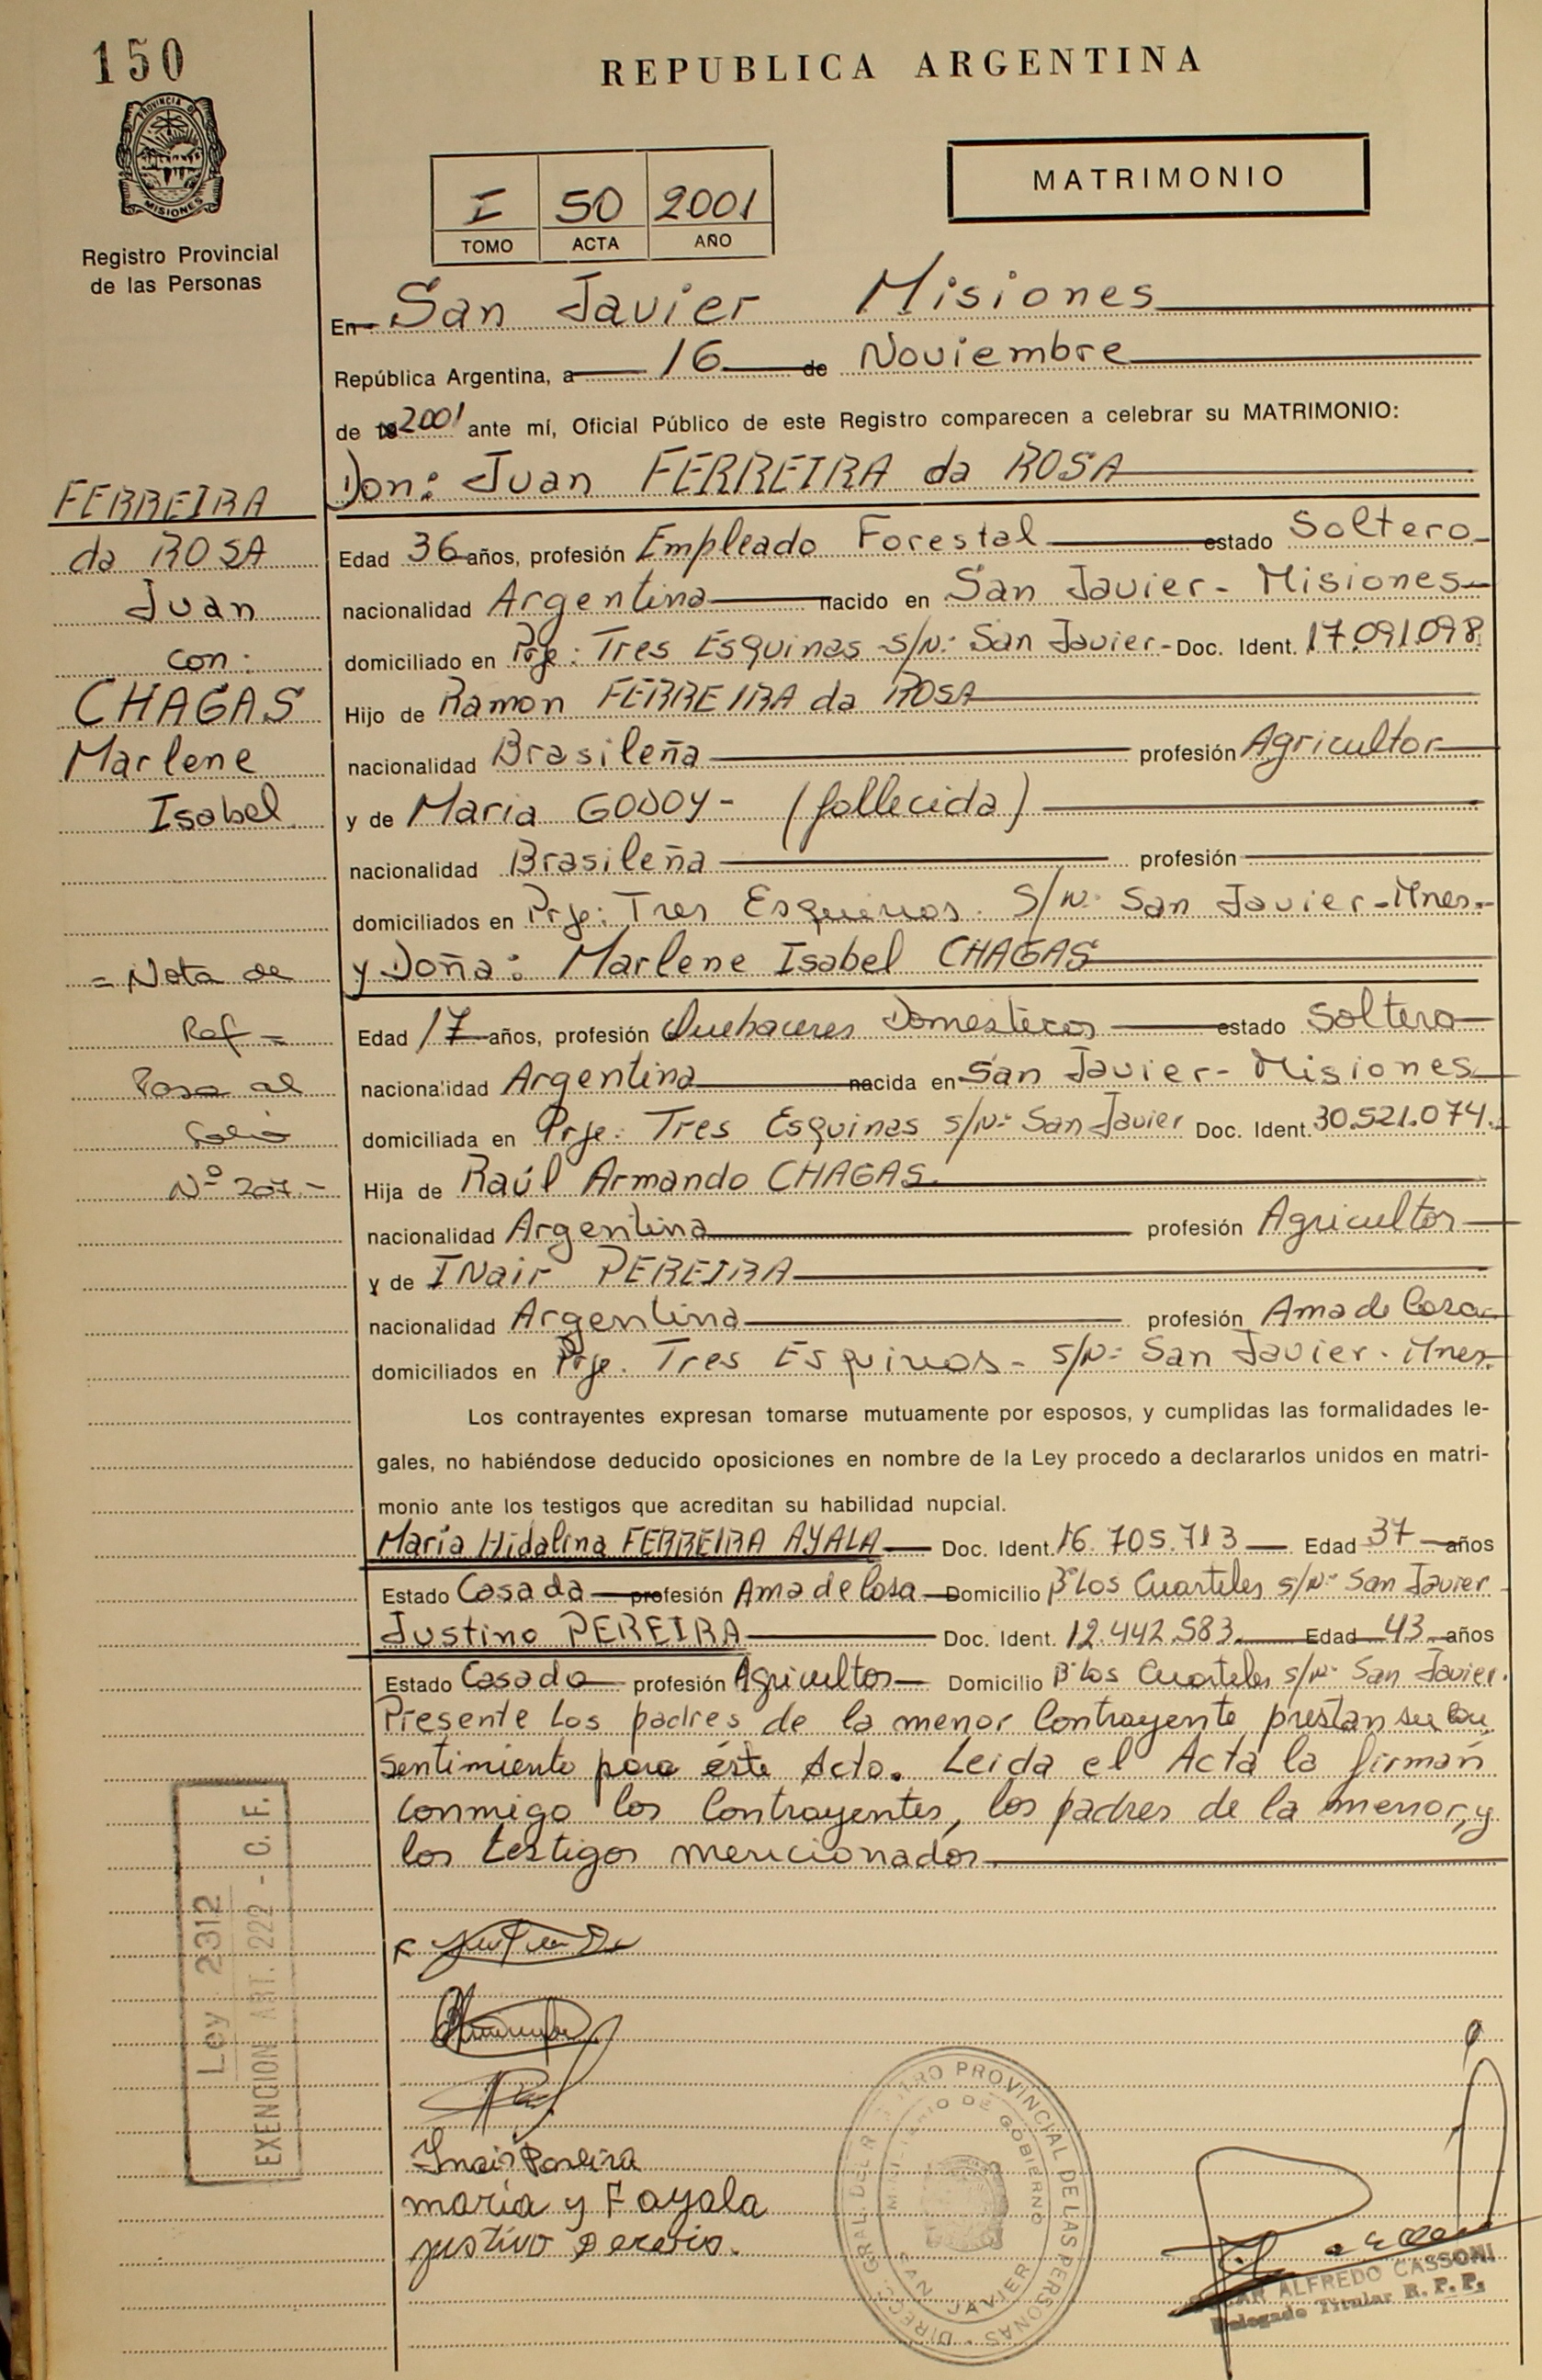 150
REPUBLICA ARGENTINA
PROVINCIA D
MISIONES
Registro Provincial
de las Personas
I 50 2001
TOMO ACTA AÑO
MATRIMONIO
En San Javier Misiones
República Argentina, a 16 de Noviembre
de 19 2001 ante mí, Oficial Público de este Registro comparecen a celebrar su MATRIMONIO:
Don: Juan FERREIRA da ROSA
FERREIRA
da ROSA
Juan
con:
CHAGAS
Marlene
Isabel
Edad 36 años, profesión Empleado Forestal estado Soltero
nacionalidad Argentina nacido en San Javier - Misiones
domiciliado en Prje: Tres Esquinas s/Nº San Javier - Doc. Ident. 17.091.098
Hijo de Ramon FERREIRA da ROSA
nacionalidad Brasileña profesión Agricultor
y de Maria GODOY - (fallecida)
nacionalidad Brasileña profesión
domiciliados en Prje: Tres Esquinas. S/Nº San Javier - Mnes.
y Doña: Marlene Isabel CHAGAS
= Nota de
Ref =
Pasa al
Folio
Nº 207.-
Edad 17 años, profesión Quehaceres Domesticos estado Soltera
nacionalidad Argentina nacida en San Javier - Misiones
domiciliada en Prje: Tres Esquinas s/Nº San Javier Doc. Ident. 30.521.074.
Hija de Raúl Armando CHAGAS
nacionalidad Argentina profesión Agricultor
y de INair PEREIRA
nacionalidad Argentina profesión Ama de Casa
domiciliados en Prje. Tres Esquinas - s/Nº San Javier. Mnes.
Los contrayentes expresan tomarse mutuamente por esposos, y cumplidas las formalidades le-
gales, no habiéndose deducido oposiciones en nombre de la Ley procedo a declararlos unidos en matri-
monio ante los testigos que acreditan su habilidad nupcial.
María Hidalina FERREIRA AYALA Doc. Ident. 16.705.713 Edad 37 años
Estado Casada profesión Ama de Casa Domicilio Bº Los Cuarteles s/Nº San Javier
Justino PEREIRA Doc. Ident. 12.442.583 Edad 43 años
Estado Casado profesión Agricultor Domicilio Bº Los Cuarteles s/Nº San Javier.
Presente Los padres de la menor Contrayente prestan su con
sentimiento para éste Acto. Leida el Acta la firman
conmigo los Contrayentes, los padres de la menor, y
los testigos mencionados.
Ley 2312
EXENCION ART. 222 - C. F.
Inair Pereira
maria y F ayala
justino Pereira.
DIRECC. GRAL. DEL REGISTRO PROVINCIAL DE LAS PERSONAS
MINISTERIO DE GOBIERNO
SAN JAVIER
OSCAR ALFREDO CASSONI
Delegado Titular R. P. P.